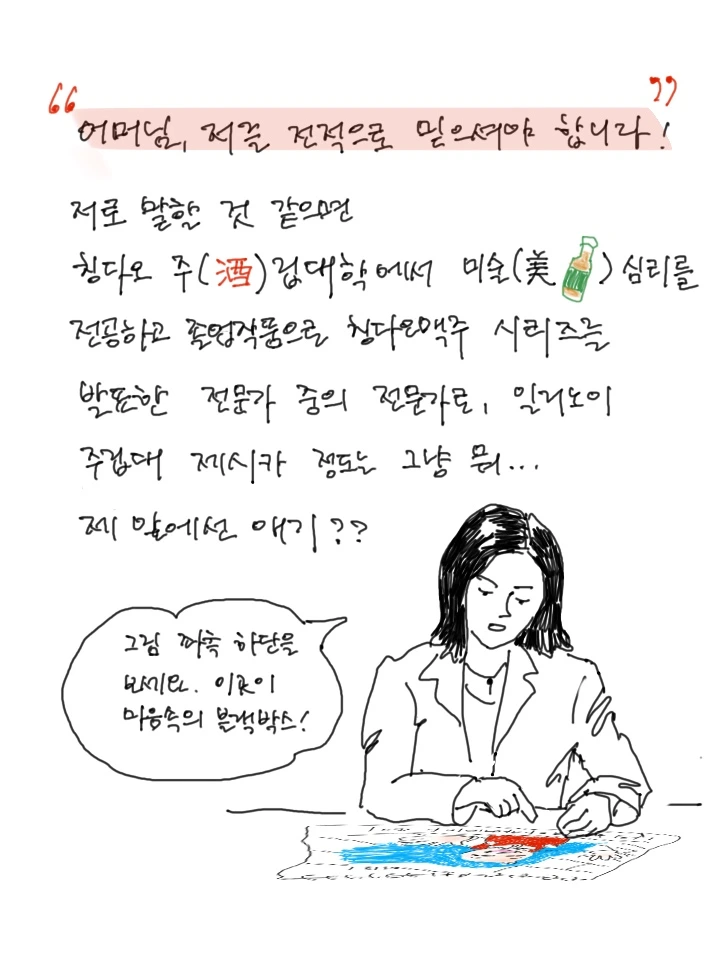 “어머님, 저를 전적으로 믿으셔야 합니다!”
저로 말할 것 같으면
칭다오 주(酒)립대학에서 미술(美) 심리를
전공하고 졸업작품으로 칭다오맥주 시리즈를
발표한 전문가 중의 전문가로, 일리노이
주립대 제시카 정도는 그냥 뭐...
제 앞에선 애기??
그림 좌측 하단을
보세요. 이곳이
마음속의 블랙박스!